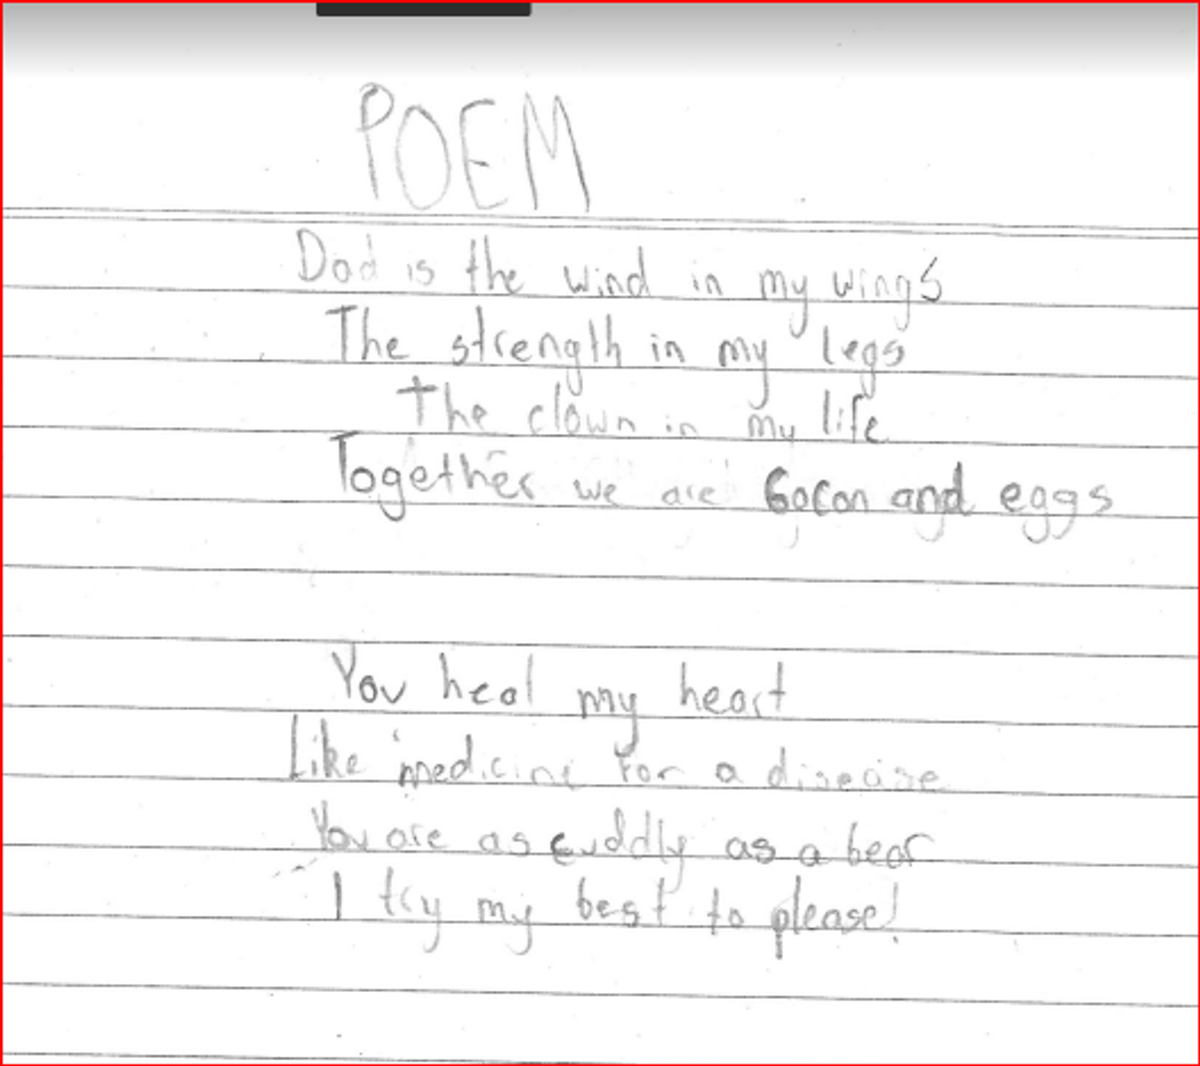 POEM
Dad is the wind in my wings
The strength in my legs
The clown in my life
Together we are bacon and eggs
You heal my heart
Like medicine for a disease
You are as cuddly as a bear
I try my best to please!